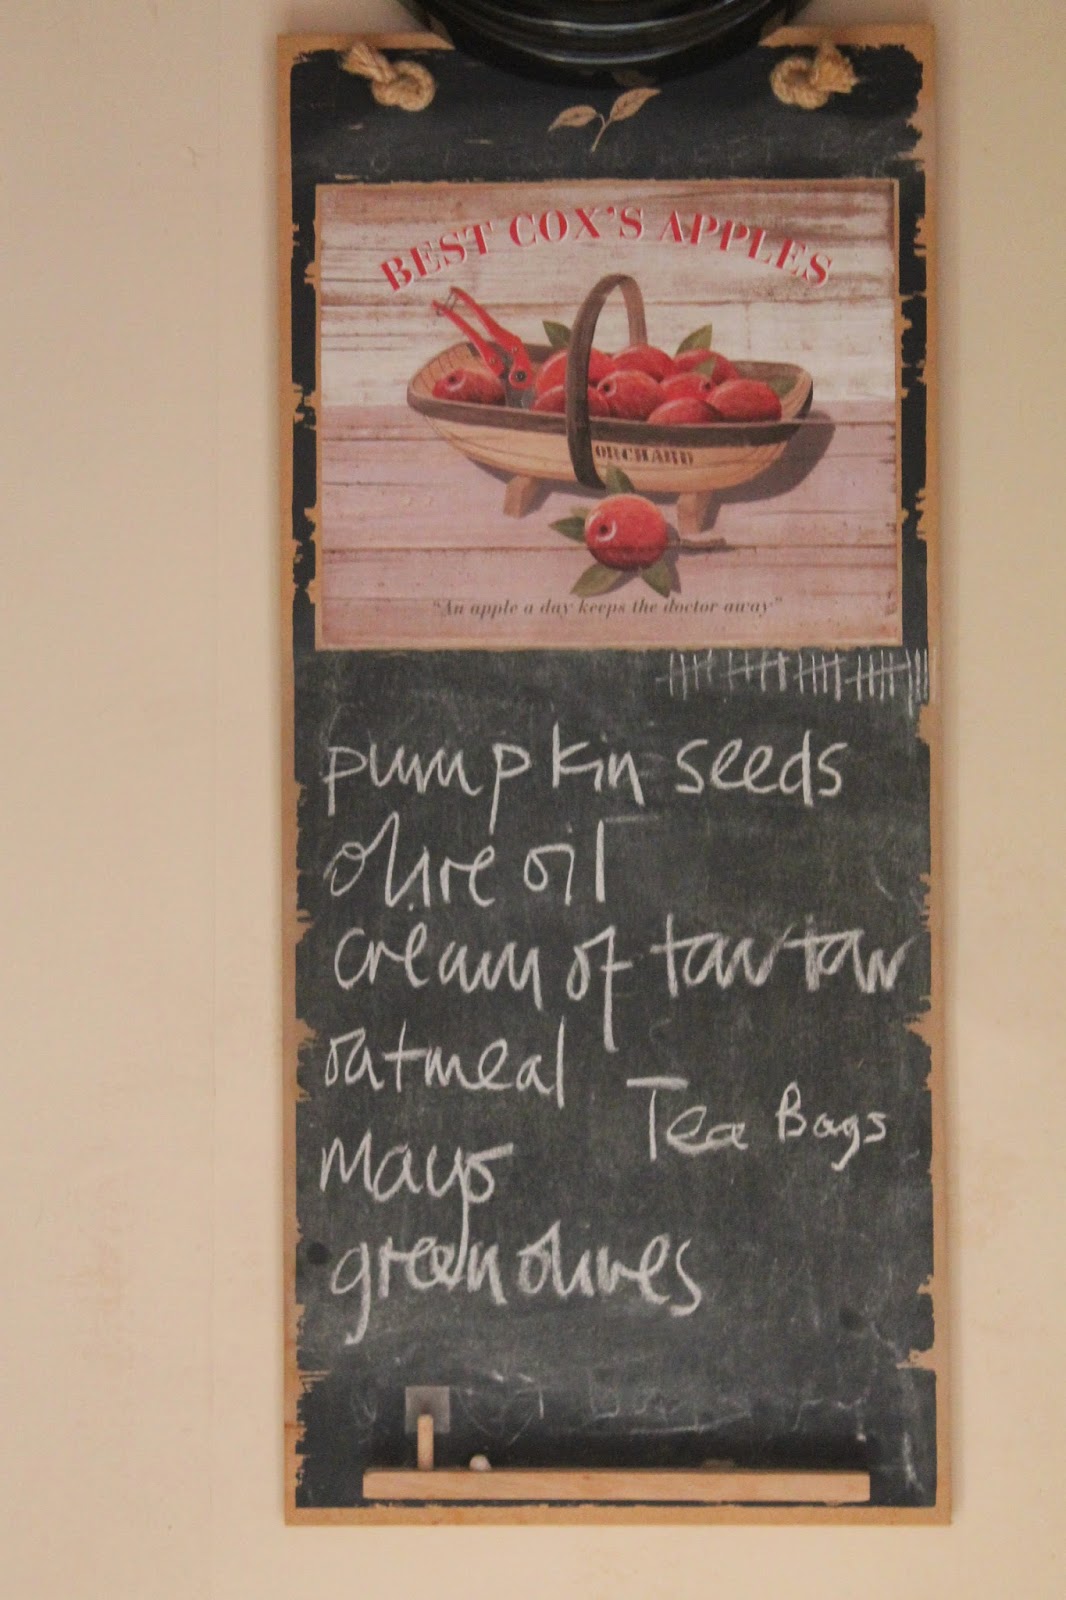 BEST COX'S APPLES
ORCHARD
"An apple a day keeps the doctor away"
pumpkin seeds
olive oil
cream of tartar
oatmeal
Tea Bags
Mayo
green olives